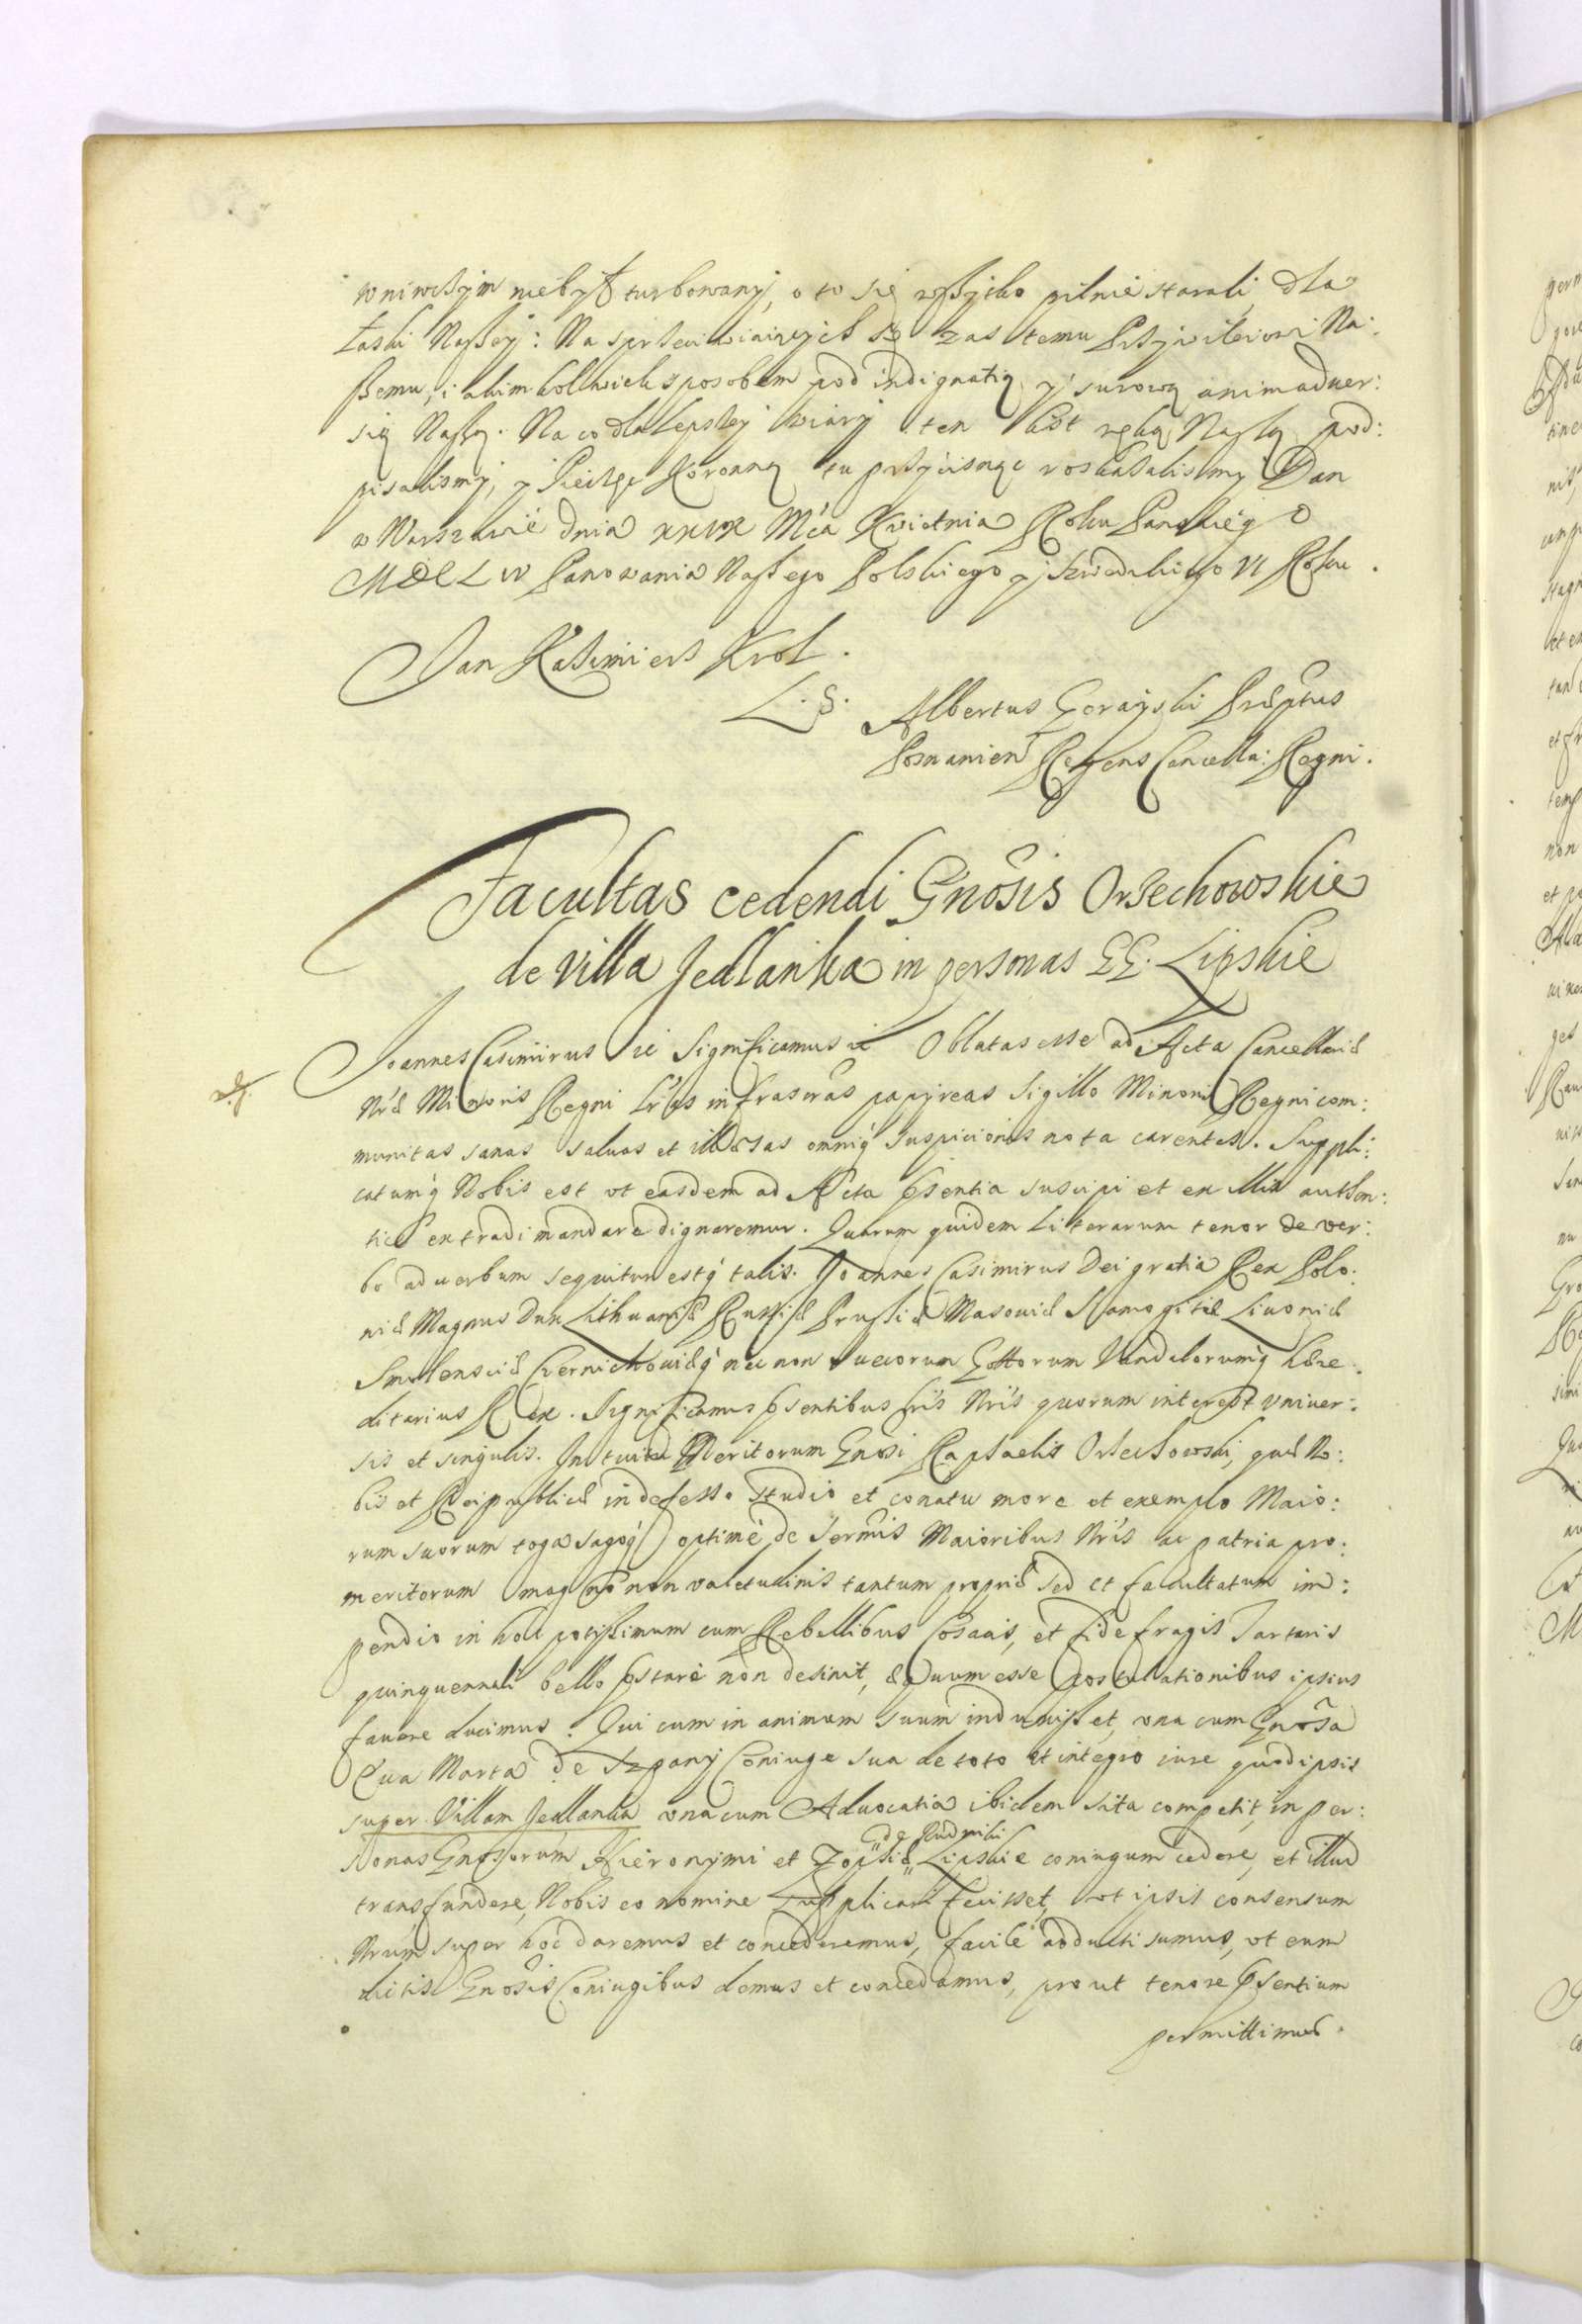 wniwczym niebył turbowany, o to się wszytko pilnie starali, dla
Łaski Naszey: Na sprzeciwiaiących się zas temu Przywileiowi Na:
szemu, iakimkolwiek sposobem pod indignatią y surową animadver:
sią Naszą. Na co dla lepszey wiary ten List ręką Naszą pod:
pisalismy, y Pieczęć Koronną tu przycisnąć roskazalismy Dan
w Warszawie dnia XXIX Mca Kwietnia Roku Panskiego
MDCLIV Panowania Naszego Polskiego y Szwedzkiego VI Roku.
Jan Kazimierz Krol.
L. S. Albertus Gorayski Præptus
Posnanien Regens Cancella: Regni.
Facultas cedendi Gnosis Orzechowskie
de Villa Jedlanka in personas GG. Lipskie
Joannes Casimirus ic Significamus ic Oblatas esse ad Acta Cancellariæ
Nræ Minoris Regni Lras infrascras papyreas Sigillo Minoris Regni com:
munitas sanas saluas et illæsas omniq suspicionis nota carentes. Suppli:
catumq Nobis est vt easdem ad Acta Psentia suscipi et ex illis authen:
ticè extradi mandare dignaremur. Quarum quidem Literarum tenor de ver:
bo ad verbum sequitur estq talis. Joannes Casimirus Dei gratia Rex Polo:
niæ Magnus Dux Lithuaniæ Russiæ Prussiæ Masouiæ Samogitiæ Liuoniæ
Smolensciæ Czernichouiæq nec non Sueorum Gottorum Vandalorumq hære:
ditarius Rex. Significamus Psentibus Lris Nris quorum interest vniuer:
sis et singulis. Intuitu Meritorum Gnosi Raphaelis Orzechowski, quæ No:
bis et Reipublicæ indefesso studio et conatu more et exemplo Maio:
rum suorum toga sagoq optimè de Sermis Maioribus Nris ac patria pro:
meritorum magno non valetudinis tantum propriæ sed et facultatum im:
pendio in hoc potissimum cum Rebellibus Cosacis, et fidefragis Tartaris
quinquennali bello Pstare non desinit, æquum esse postulationibus ipsius
fauere ducimus. Qui cum in animum suum induxisset, vna cum Gnosa
Eua Marta de Czgany Coniuge sua de toto et integro iure quod ipsis
super Villam Jedlanka vna cum Aduocatia ibidem sita competit, in per:
de Rudniki
sonas Gnosorum Hieronymi et Zophiæ Lipskie coniugum cedere, et illud
transfundere, Nobis eo nomine Supplicari fecisset, vt ipsis consensum
Nrum super hoc daremus et concederemus, facilè adducti sumus, vt eum
dictis Gnosis Coniugibus demus et concedamus, prout tenore Psentium
permittimus.